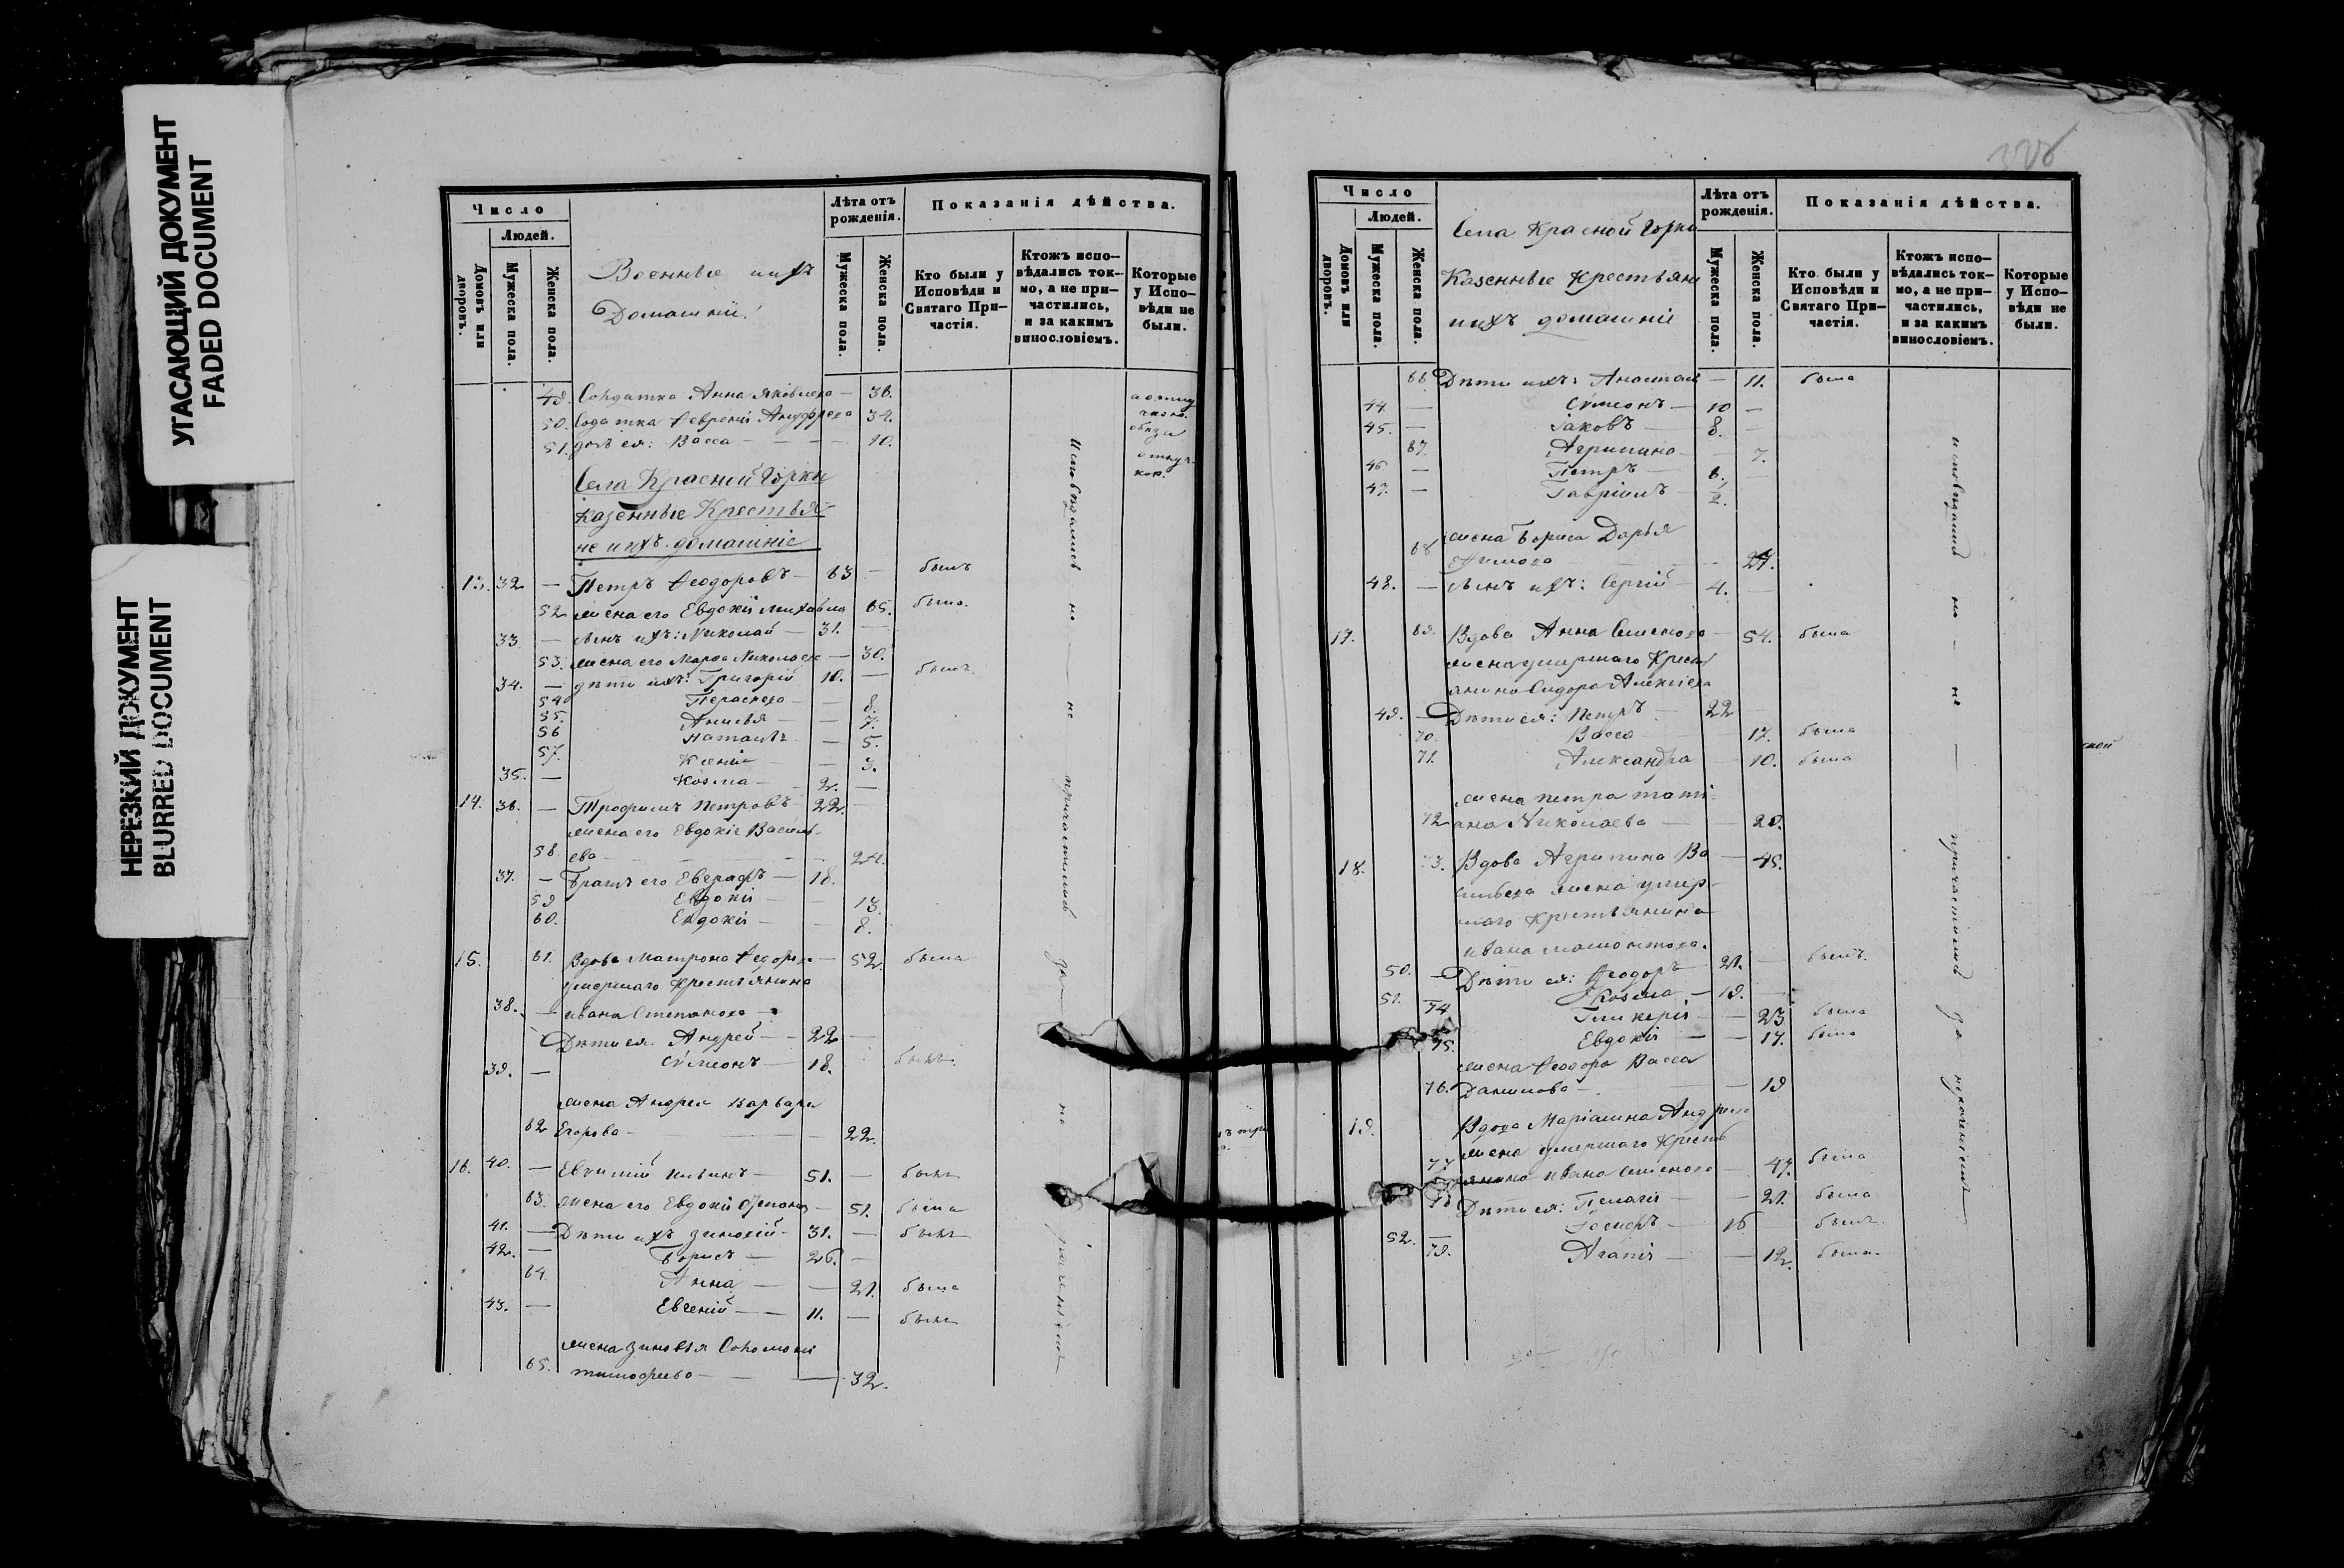 УГАСАЮЩИЙ ДОКУМЕНТ
FADED DOCUMENT
НЕРЕЗКИЙ ДОКУМЕНТ
BLURRED DOCUMENT
Число
Людей.
Домовъ или дворовъ.
Мужеска пола.
Женска пола.
Военные ихъ
Домашніи.
Лѣта отъ рожденія.
Мужеска пола.
Женска пола.
Показанія дѣйства.
Кто были у Исповѣди и Святаго При-
частія.
Ктожъ испо-
вѣдались ток-
мо, а не при-
частились,
и за какимъ
винословіемъ.
Которые
у Испо-
вѣди не
были.
49. Солдатка Анна Яковлева — 36.
50. 34.
51. дочь ея: Васса — 10.
Села Красной Горки
казенные Крестья-
не и ихъ домашніе
13. 32 — Петръ Ѳеодоровъ — 63 — былъ
52 жена его Евдокія 65. была.
33. — сынъ ихъ: Николай — 31. —
53. жена его Марѳа Николаева — 30.
34. — дѣти ихъ: Григорій 10. — былъ
54 — 8.
55. Анисья — 7.
56 Наталья — 5.
57. Ксенія — 3.
35. — Косма — 2. —
14. 36. — Трофимъ Петровъ — 22.
жена его Евдокія Василь-
58. ева — 24.
37. — Братъ его Евграфъ — 18.
59 Евдокія — 13.
60. Евдокія — 8.
15. 61. Вдова Матрона Ѳедорова — 52. была
умершаго Крестьянина
38. — ивана Степанова
Дѣти ея: Андрей — 22 —
39. — Сѵмеонъ — 18. былъ
жена Андрея Варвара
62 Егорова — 22.
16. 40. — Евѳимій — 51. — былъ
63. жена его Евдокія — 51. была
41. — Дѣти ихъ Зиновій — 31. — былъ
42. — Борисъ — 26. —
64. Анна — 21. была
43. — Евгеній — 11. — былъ
жена Зиновія Соломонія
65. Тимофеева — 32.
Исповѣдались но — не причастились за
Число
Людей.
Домовъ или дворовъ.
Мужеска пола.
Женска пола.
Села Красной Горки
Казенные Крестьяне
и ихъ домашніе
Лѣта отъ рожденія.
Мужеска пола.
Женска пола.
Показанія дѣйства.
Кто были у
Исповѣди и
Святаго При-
частія.
Ктожъ испо-
вѣдались ток-
мо, а не при-
частились,
и за какимъ
винословіемъ.
Которые
у Испо-
вѣди не
были.
66 Дѣти ихъ: Анастасія — 11. была
44. — Сѵмеонъ — 10 —
45. — Іаковъ — 8. —
67. Агрипина — 7.
46 — Петръ — 6. —
47. — Гавріилъ 2.
жена Бориса Дарья
68 27.
48. — сынъ ихъ: Сергій — 4. —
17. 69. Вдова Анна Семенова — 54. была
жена умершаго Кресть-
янина Сидора Алексеева
49. — Дѣти ея: Петръ — 22 —
70. Васса — 17. была
71. Александра — 10. была
жена петра тати-
72 ана Николаева — 20.
18. 73. Вдова Агрипина Ва — 45.
сильева жена умер-
шаго Крестьянина
ивана
50. — Дѣти ея: Ѳеодоръ — 21. — былъ.
51. — Косма — 19. —
74 Гликерія — 23 была
75. Евдокія — 17. была
жена Ѳеодора Васса
76. Данилова — 19
19. Вдова Маріамна Андреева
жена умершаго Кресть-
77 янина ивана Семенова — 47. была
78 Дѣти ея: Пелагія — 21. была
52. — 16 былъ.
79. Агапія — 12. была
исповѣдались но — не — причастились за